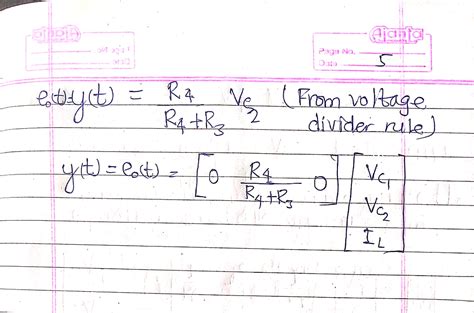 Ajanta
Page No.
Date 5
e₀(t)=y(t) = R4 / (R4+R3) Vc2 (From voltage
divider rule)
y(t)=e₀(t)= [0 R4/(R4+R3) 0] [Vc1
Vc2
IL]